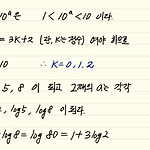 10ᵃ은 1<10ᵃ<10 이다.
=3K+2 (단, K는정수) 여야 하므로
10 ∴ K=0,1,2
5, 8 이 되고 그때의 a는 각각
, log5, log8 이 된다.
log8 = log 80 = 1+3log2